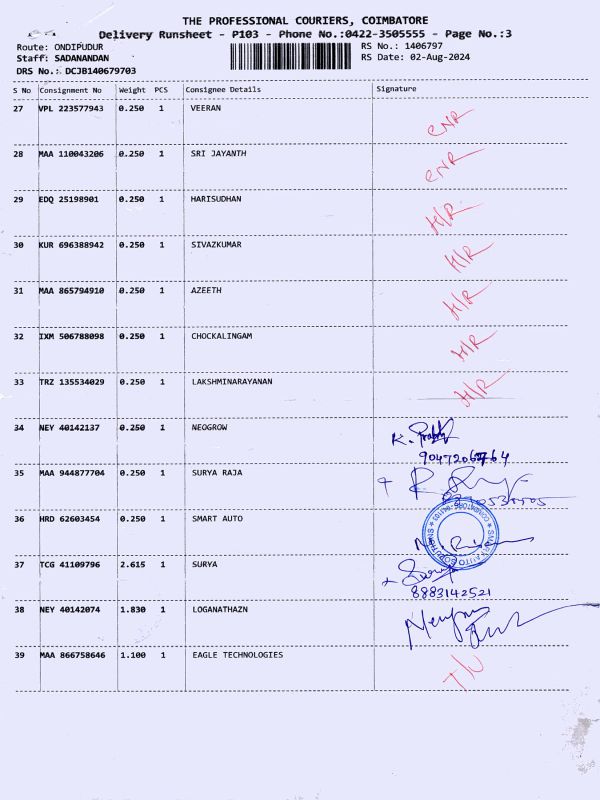 THE PROFESSIONAL COURIERS, COIMBATORE
Delivery Runsheet - P103 - Phone No.:0422-3505555 - Page No.:3
Route: ONDIPUDUR RS No.: 1406797
Staff: SADANANDAN RS Date: 02-Aug-2024
DRS No.: DCJB140679703
S No Consignment No Weight PCS Consignee Details Signature
27 VPL 223577943 0.250 1 VEERAN CNR
28 MAA 110043206 0.250 1 SRI JAYANTH CNR
29 EDQ 25198901 0.250 1 HARISUDHAN H/R
30 KUR 696388942 0.250 1 SIVAZKUMAR H/R
31 MAA 865794910 0.250 1 AZEETH H/R
32 IXM 506788098 0.250 1 CHOCKALINGAM H/R
33 TRZ 135534029 0.250 1 LAKSHMINARAYANAN H/R
34 NEY 40142137 0.250 1 NEOGROW K. Prabhu
35 MAA 944877704 0.250 1 SURYA RAJA
36 HRD 62603454 0.250 1 SMART AUTO
37 TCG 41109796 2.615 1 SURYA Surya
8883142521
38 NEY 40142074 1.830 1 LOGANATHAZN
39 MAA 866758646 1.100 1 EAGLE TECHNOLOGIES